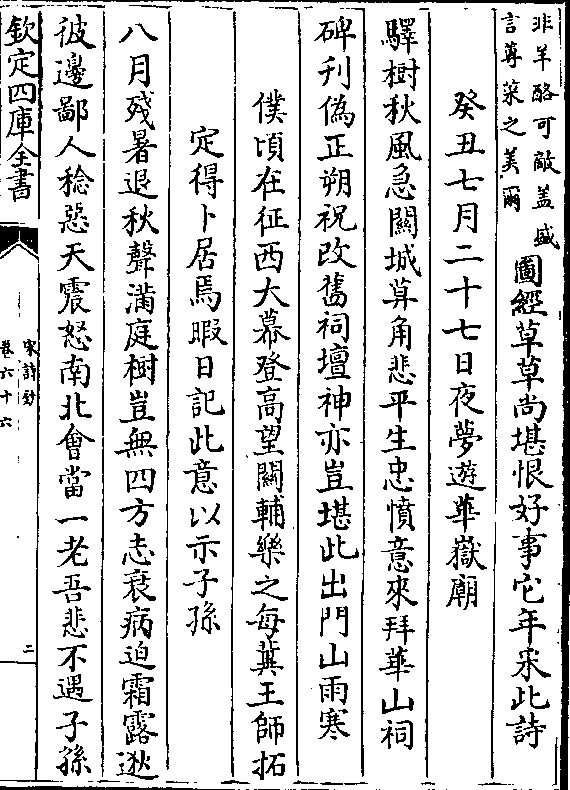 非羊酪可敵盖盛
言蓴菜之美爾
圖經草草尚堪恨好事它年采此詩
癸丑七月二十七日夜夢遊華嶽廟
驛樹秋風急關城莫角悲平生忠憤意來拜華山祠
碑刋偽正朔祝改舊祠壇神亦豈堪此出門山雨寒
僕頃在征西大幕登高望關輔樂之每冀王師拓
定得卜居焉暇日記此意以示子孫
八月殘暑退秋聲滿庭樹豈無四方志衰病迫霜露逖
彼邊鄙人稔惡天震怒南北會當一老吾悲不遇子孫
欽定四庫全書
宋詩鈔
卷六十六
二